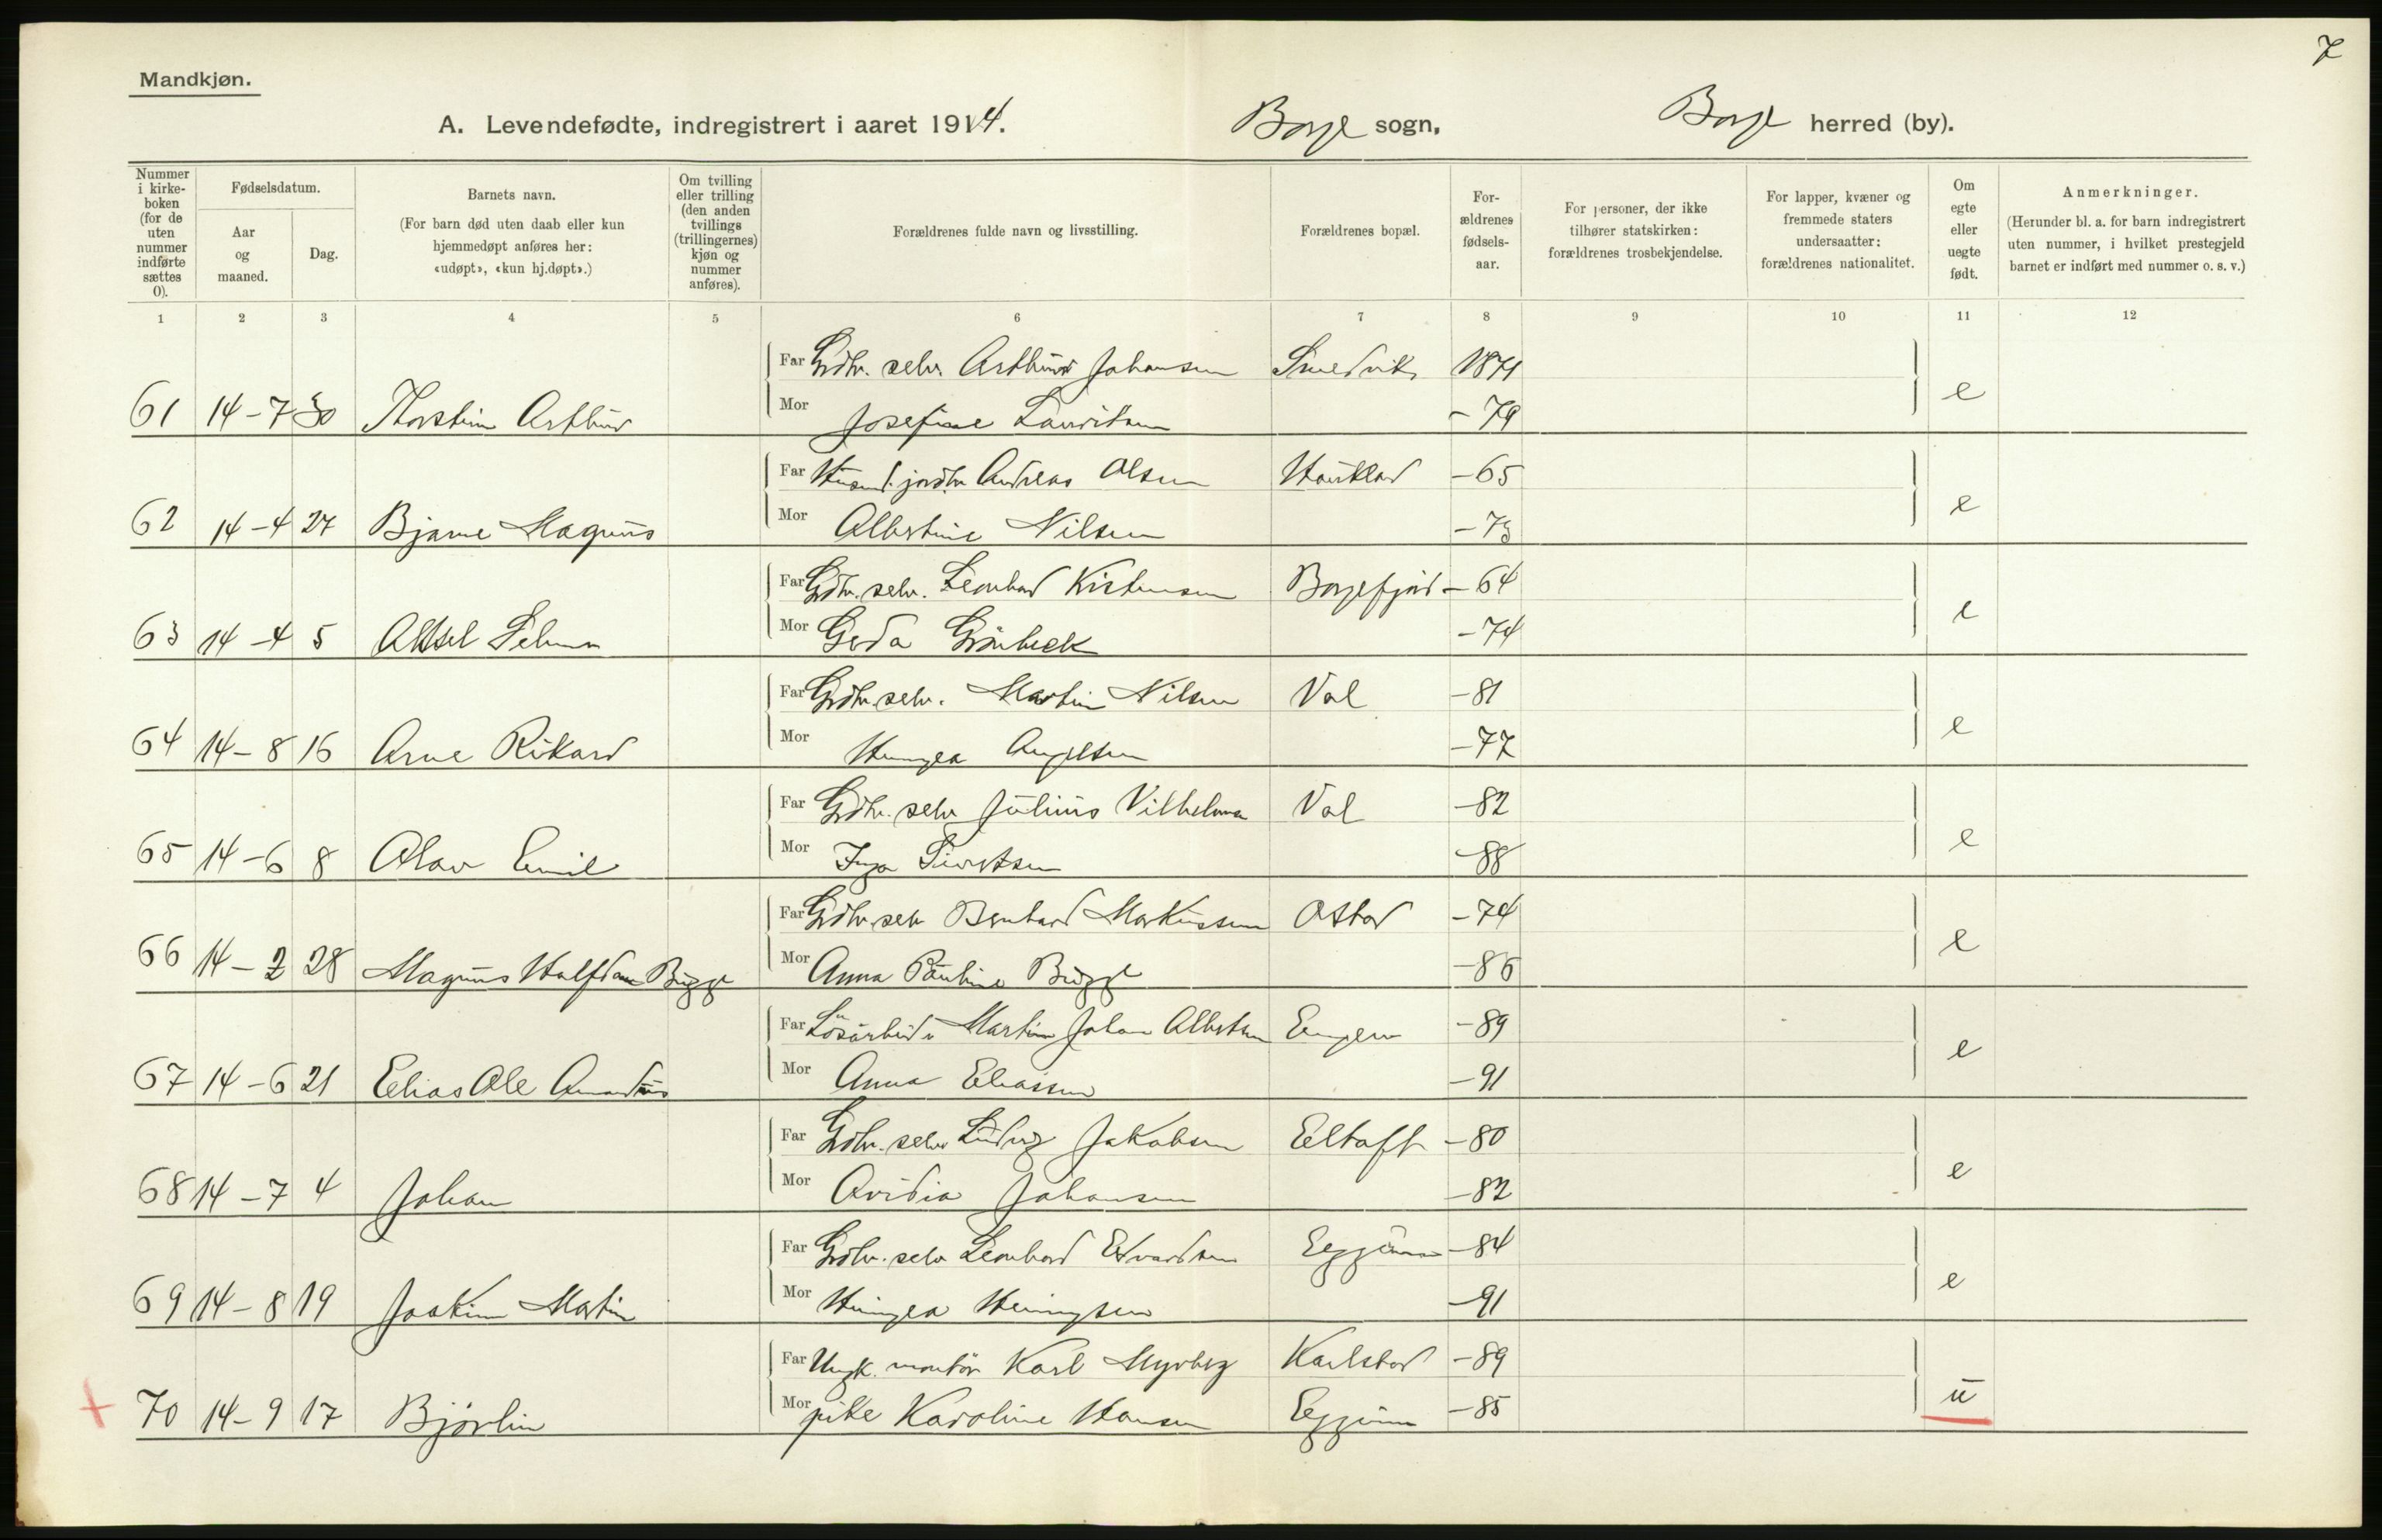 7
Mandkjøn.
A. Levendefødte, indregistrert i aaret 1914. Borge sogn, Borge herred (by).
Nummer i kirkeboken (for de uten nummer indførte sættes 0).
Fødselsdatum.
Aar og maaned.
Dag.
Barnets navn.
(For barn død uten daab eller kun hjemmedøpt anføres her: «udøpt», «kun hj.døpt».)
Om tvilling eller trilling (den anden tvillings (trillingernes) kjøn og nummer anføres).
Forældrenes fulde navn og livsstilling.
Forældrenes bopæl.
Forældrenes fødselsaar.
For personer, der ikke tilhører statskirken: forældrenes trosbekjendelse.
For lapper, kvæner og fremmede staters undersaatter: forældrenes nationalitet.
Om egte eller uegte født.
Anmerkninger.
(Herunder bl. a. for barn indregistrert uten nummer, i hvilket prestegjeld barnet er indført med nummer o. s. v.)
1 2 3 4 5 6 7 8 9 10 11 12
Far Grdbr. selv. Arthur Johansen Smedvik 1871
61 14-7 30 Thorstein Arthur Mor Josefine Lauritsen -79 e
Far Husm. jordbr Andreas Olsen Haukland -65
62 14-4 27 Bjarne Magnus Mor Albertine Nilsen -73 e
Far Grdbr. selv. Leonhard Kristensen Borgefjord -64
63 14-4 5 Aksel Selmer Mor Gerda Grönbeck -74 e
Far Grdbr. selv. Martin Nilsen Val -81
64 14-8 16 Arne Rikard Mor Angelsen -77 e
Far Grdbr. selv Julius Vilhelmsen Val -82
65 14-6 8 Olav Emil Mor Inga Sivertsen -88 e
Far Grdbr. selv Bernhard Markussen -74
66 14-2 28 Magnus Halfdan Bugge Mor Anna Pauline Bugge -86 e
Far Lösarbeider Martin Johan Albertsen -89
67 14-6 21 Elias Ole Amandus Mor Anna Eliassen -91 e
Far Grdbr. selv Ludvig Jakobsen Eltoft -80
68 14-7 4 Johan Mor Ovidia Johansen -82 e
Far Grdbr. selv Leonhard Edvardsen Eggum -84
69 14-8 19 Joakim Martin Mor Henningsen -91 e
Far Ungk. montör Karl Myrberg Karlstad -89
+ 70 14-9 17 Mor pike Karoline Hansen Eggum -85 u